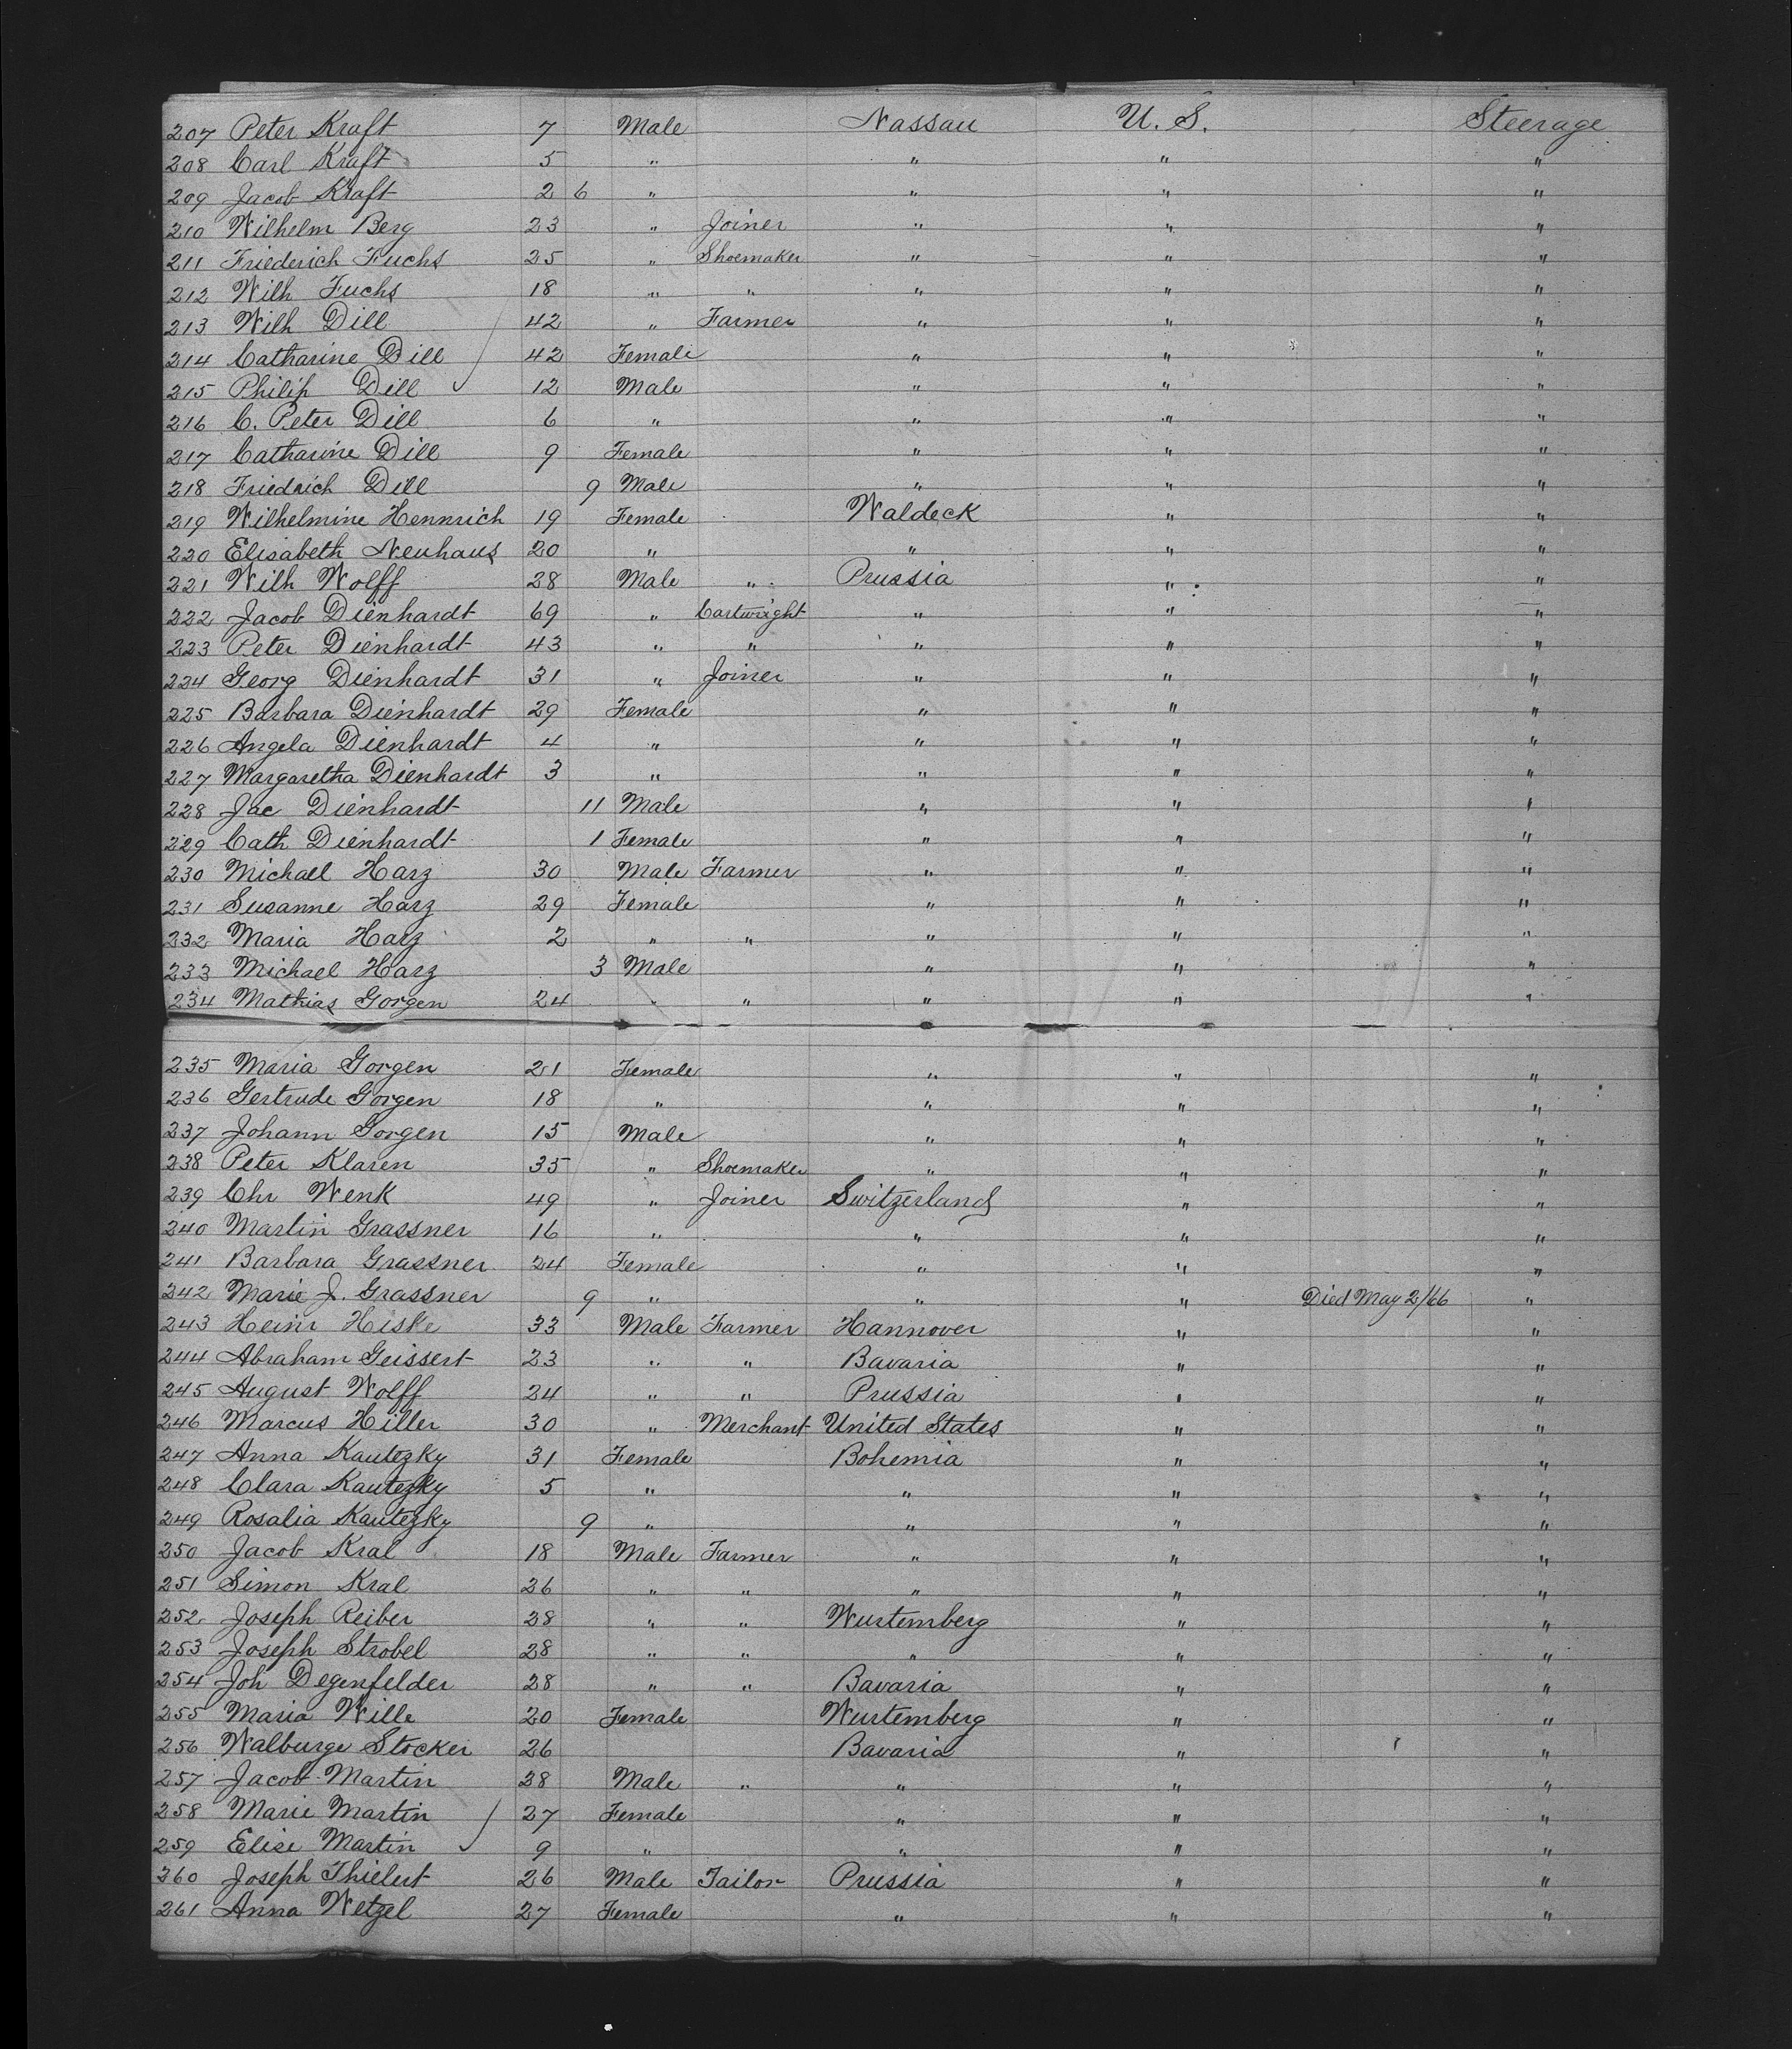 207 Peter Kraft 7 Male Nassau U. S. Steerage
208 Carl Kraft 5 " " " "
209 Jacob Kraft 2 6 " " " "
210 Wilhelm Berg 23 " Joiner " " "
211 Friederich Fuchs 25 " Shoemaker " " "
212 Wilh Fuchs 18 " " " " "
213 Wilh Dill 42 " Farmer " " "
214 Catharine Dill 42 Female " " "
215 Philip Dill 12 Male " " "
216 C. Peter Dill 6 " " " "
217 Catharine Dill 9 Female " " "
218 Friedrich Dill 9 Male " " "
219 Wilhelmine Hennrich 19 Female Waldeck " "
220 Elisabeth Neuhaus 20 " " " "
221 Wilh Wolff 28 Male " Prussia " "
222 Jacob Dienhardt 69 " Cartwright " " "
223 Peter Dienhardt 43 " " " " "
224 Georg Dienhardt 31 " Joiner " " "
225 Barbara Dienhardt 29 Female " " "
226 Angela Dienhardt 4 " " " "
227 Margaretha Dienhardt 3 " " " "
228 Jac Dienhardt 11 Male " " "
229 Cath Dienhardt 1 Female " " "
230 Michael Harz 30 Male Farmer " " "
231 Susanne Harz 29 Female " " "
232 Maria Harz 2 " " " " "
233 Michael Harz 3 Male " " "
234 Mathias Gorgen 24 " " " " "
235 Maria Gorgen 21 Female " " "
236 Gertrude Gorgen 18 " " " "
237 Johann Gorgen 15 Male " " "
238 Peter Klaren 35 " Shoemaker " " "
239 Chr Wenk 49 " Joiner Switzerland " "
240 Martin Grassner 16 " " " "
241 Barbara Grassner 24 Female " " "
242 Marie J. Grassner 9 " " " Died May 2/66 "
243 Heinr Hiske 33 Male Farmer Hannover " "
244 Abraham Geissert 23 " " Bavaria " "
245 August Wolff 24 " " Prussia " "
246 Marcus Hiller 30 " Merchant United States " "
247 Anna Kautezky 31 Female Bohemia " "
248 Clara Kautezky 5 " " " "
249 Rosalia Kautezky 9 " " " "
250 Jacob Kral 18 Male Farmer " " "
251 Simon Kral 26 " " " " "
252 Joseph Reiber 28 " " Wurtemberg " "
253 Joseph Strobel 28 " " " " "
254 Joh Degenfelder 28 " " Bavaria " "
255 Maria Wille 20 Female Wurtemberg " "
256 Walburge Stocker 26 Bavaria " "
257 Jacob Martin 28 Male " " " "
258 Marie Martin 27 Female " " "
259 Elise Martin 9 " " " "
260 Joseph Thielert 26 Male Tailor Prussia " "
261 Anna Wetzel 27 Female " " "